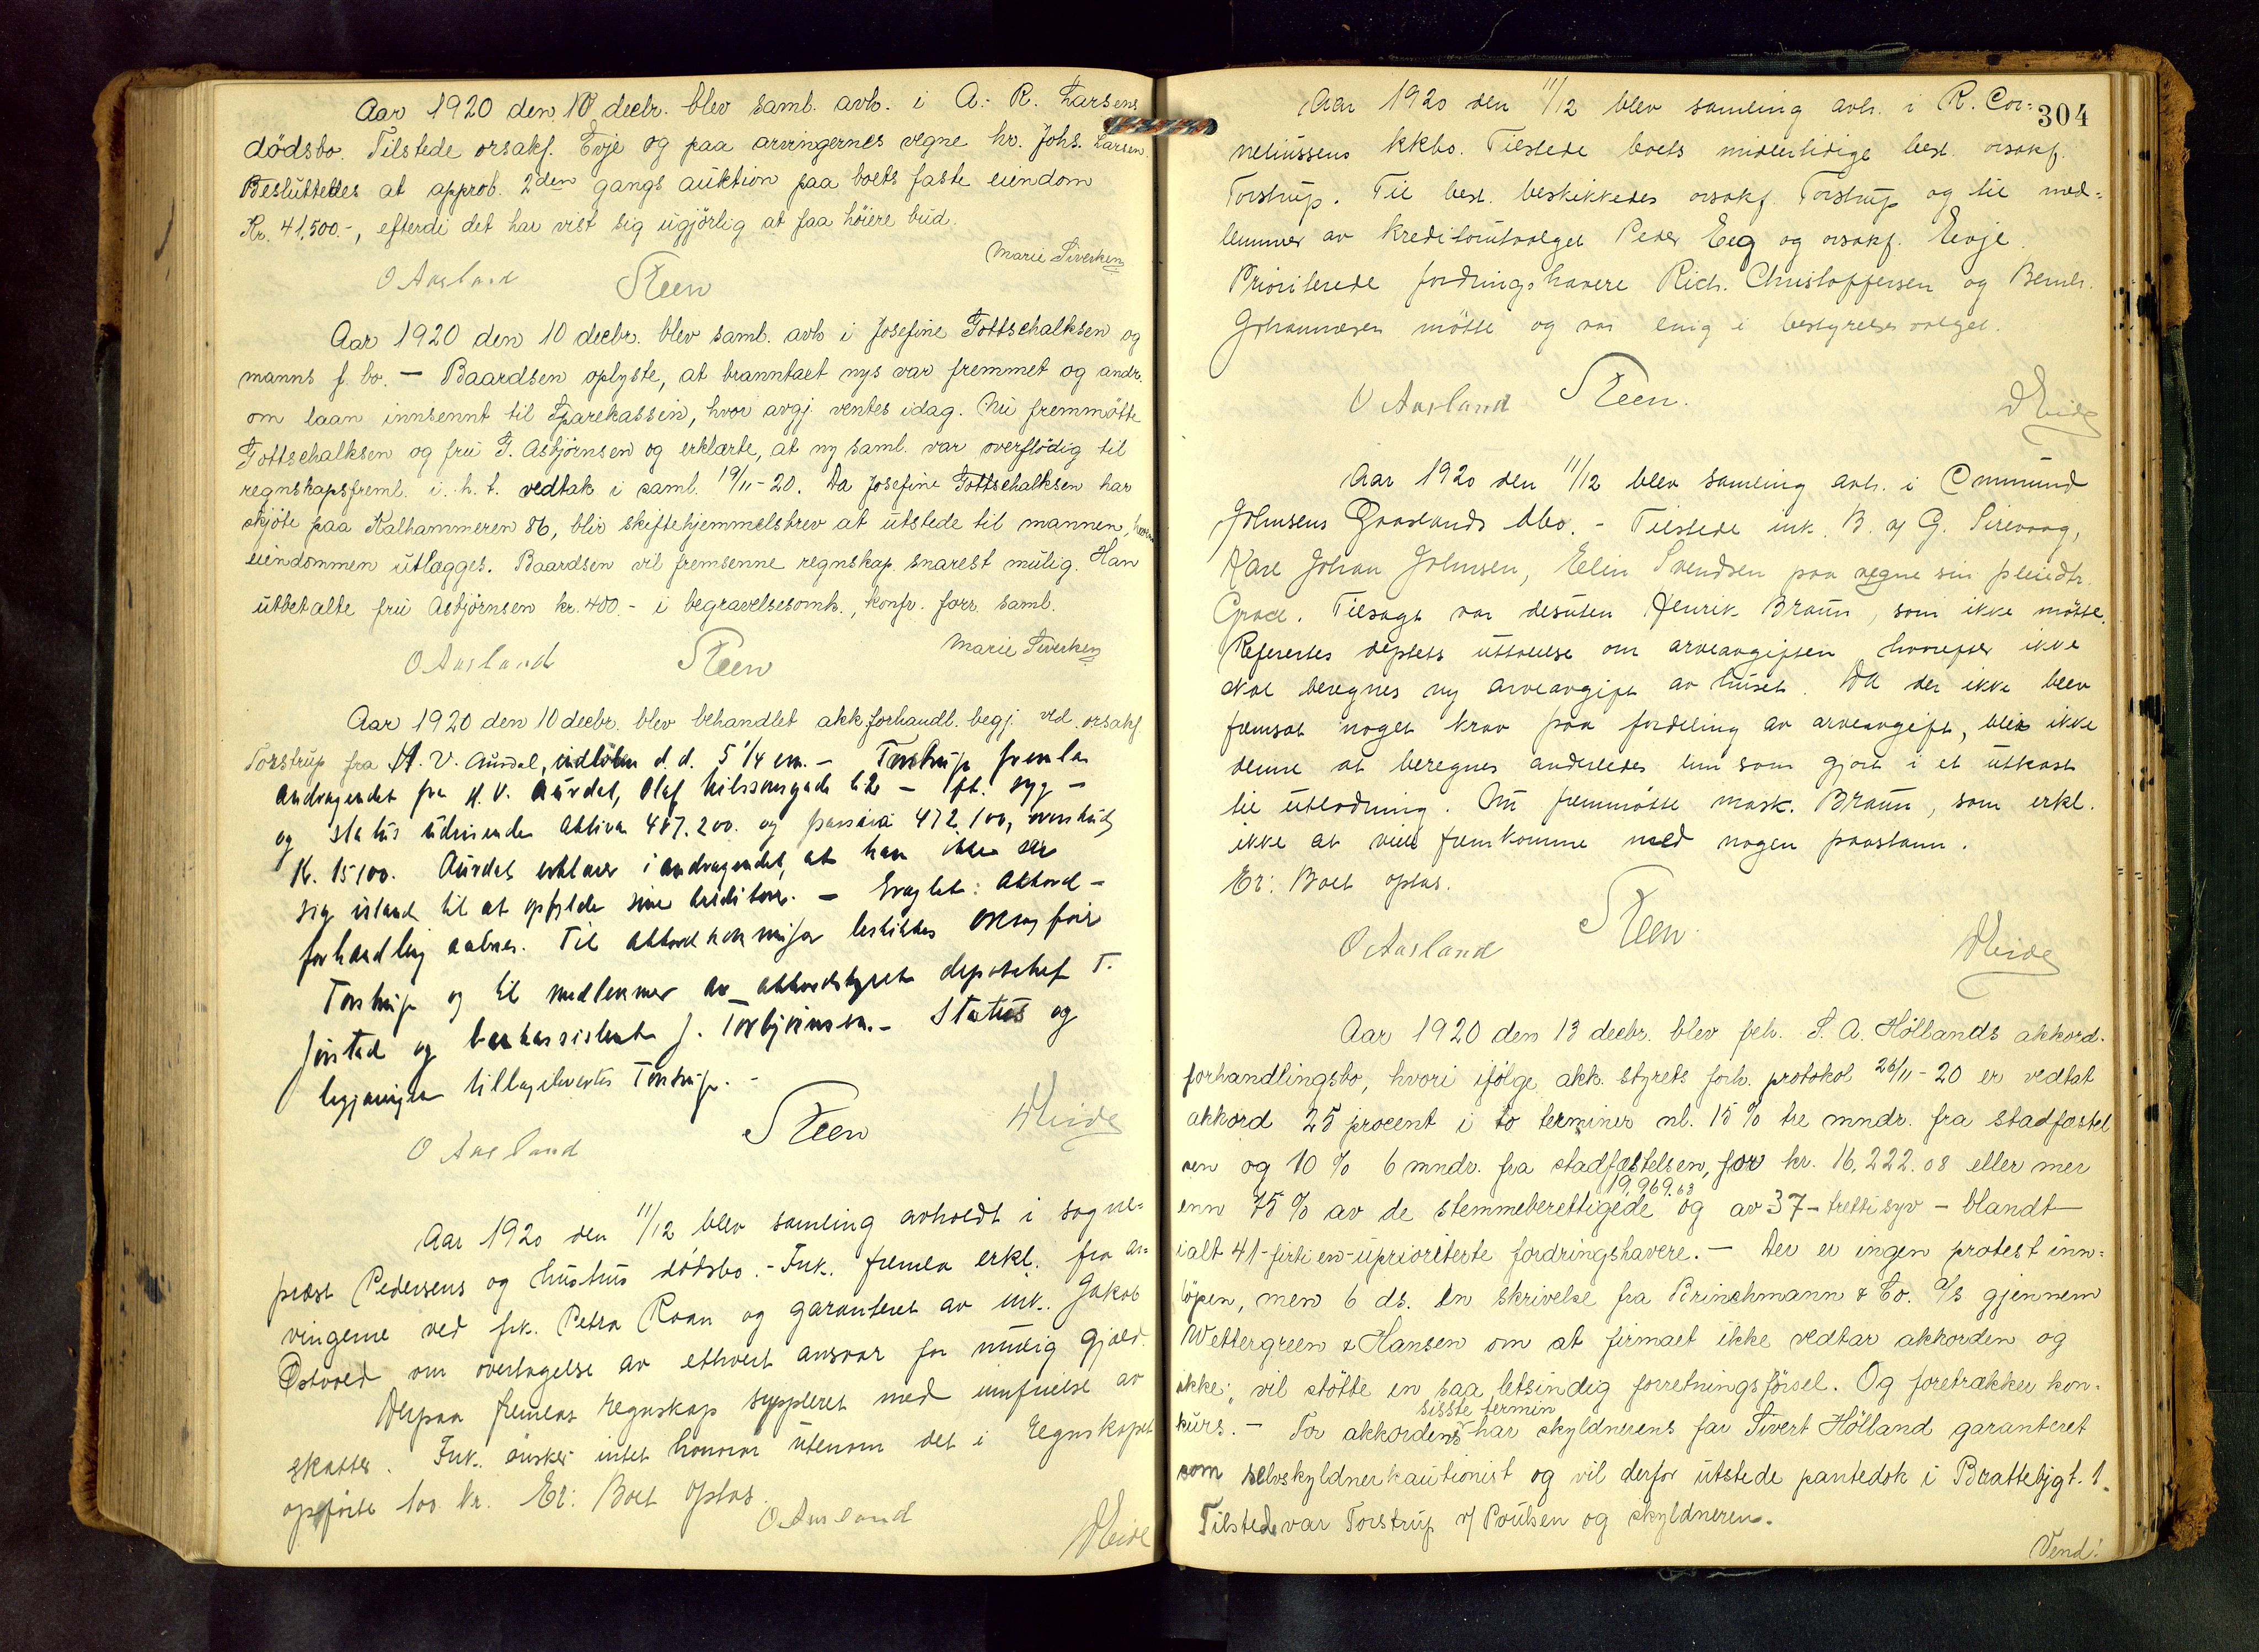 Aar 1920 den 10 decbr. blev saml. avh. i A. R. Larsens
dödsbo. Tilstede orsakf. Evje og paa arvingernes vegne hr. Johs. Larsen.
Besluttedes at approb. 2den gangs auktion paa boets faste eiendom
Kr. 41,500.-, efterdi det har vist sig ugjörlig at faa höiere bud.
Marie Siverken
O Aasland Steen
Aar 1920 den 10 decbr. blev saml. avh i Josefine Gottschalksen og
manns f. bo. — Baardsen oplyste, at branntaet nys var fremmet og andr.
om laan innsennt til Sparekassen, hvor avgj. ventes idag. Nu fremmötte
Gottschalksen og frü G. Asbjörnsen og erklærte, at ny saml. var overflödig til
regnskapsfreml. i. h. t. vedtak i saml. 19/11-20. Da Josefine Gottschalksen har
skjöte paa Kalhammeren 86, blir skiftehjemmelsbrev at utstede til mannen, hvem
eiendommen utlægges. Baardsen vil fremsenne regnskap snarest mulig. Han
utbetalte frü Asbjörnsen kr. 400.- i begravelsesomk., konfr. forr. saml.
Marie Siverken
O Aasland Steen
Aar 1920 den 10 decbr. blev behandlet akk.forhandl. begj. ved orsakf
Torstrup fra H. V. Aurdal, indloben d.d. 5 1/4 em. — Torstrup fremla
andragendet fra H. V. Aurdal, Olaf Kilssonsgade
og status udvisende aktiva 487.200. og passiva 472.100, overskud
Kr. 15100. Aurdal erklærer i andragendet, at han ikke ser
sig istand til at opfylde sine kreditorer. — Eragtet: Akkord-
forhandling aabnes. Til akkordkommissær beskikkes orsagfører
Torstrup og til medlemmer av akkordstyret depotchef T.
Jörstad og bankassistent J. Torbjörnsen. — Status og
begjæringen tilbageleverte Torstrup. -
Steen WEide
O Aasland
Aar 1920 den 11/12 blev samling avholdt i sogne-
præst Pedersens og hustrus dödsbo. - Ink. fremla erkl. fra ar-
vingerne ved frk. Petra Roan og garanteret av ink. Jakob
Østvold om overtagelse av ethvert ansvar for mulig gjæld.
Derpaa fremlas regnskap suppleret med innfrielse av
skatter. Ink. ønsker intet honorar utenom det i regnskapet
opförte 100 kr. Er: Boet optas.
O Aasland WEide
304
Aar 1920 den 11/12 blev samling avh. i R. Cor-
neliussens kkbo. Tilstede boets midlertidige best. orsakf.
Torstrup. Til best. beskikkedes orsakf. Torstrup og til med-
lemmer av kreditorutvalget Peder Eeg og orsakf. Evje.
Prioriterede fordringshavere Rich. Christoffersen og Bernh.
Johannesen mötte og var enig i bestyrelsesvalget.
O Aasland Steen. WEide
Aar 1920 den 11/12 blev samling avh. i Ommund
Johnsens Graslands dbo. - Tilstede ink. B. af G. Sirevaag,
Karl Johan Johnsen, Elin Svendsen paa vegne sin pleiedtr.
Grace. Tilsagt var desuten Henrik Braun, som ikke mötte.
Referertes deptets uttalelse om arveavgiften hvorefter ikke
skal beregnes ny arveavgift av huset. Da der ikke blev
fremsat noget krav paa fordeling av arveavgift, blir ikke
denne at beregnes anderledes enn som gjort i et utkast
til utlodning. Nu fremmötte mask. Braun, som erkl.
ikke at ville fremkomme med nogen paastann.
Er: Boet optas.
Steen
O Aasland WEide
Aar 1920 den 13 decbr. blev beh. S. A. Höllands akkord-
forhandlingsbo, hvori ifölge akk. styrets forh. protokol 26/11-20 er vedtat
akkord 25 procent i to terminer nl. 15 % tre mndr. fra stadfæstel
sen og 10 % 6 mndr. fra stadfæstelsen, for kr. 16,222.08 eller mer
enn 75 % av de stemmeberettigede 19,969.63 og av 37 - trettisyv - blandt
ialt 41 - firti en - uprioriterte fordringshavere. — Der er ingen protest inn-
löpen, men 6 ds. en skrivelse fra Brinchmann & Co. A/S gjennem
Wettergreen & Hansen om at firmaet ikke vedtar akkorden og
ikke: "vil stötte en saa letsindig forretningsförsel. Og foretrækker kon-
kurs. — For akkordens sisste termin har skyldnerens far Sivert Hölland garanteret
som selvskyldnerkautionist og vil derfor utstede pantedok i Brattebjgt. 1.
Tilstede var Torstrup v/ Poulsen og skyldneren.
Vend!